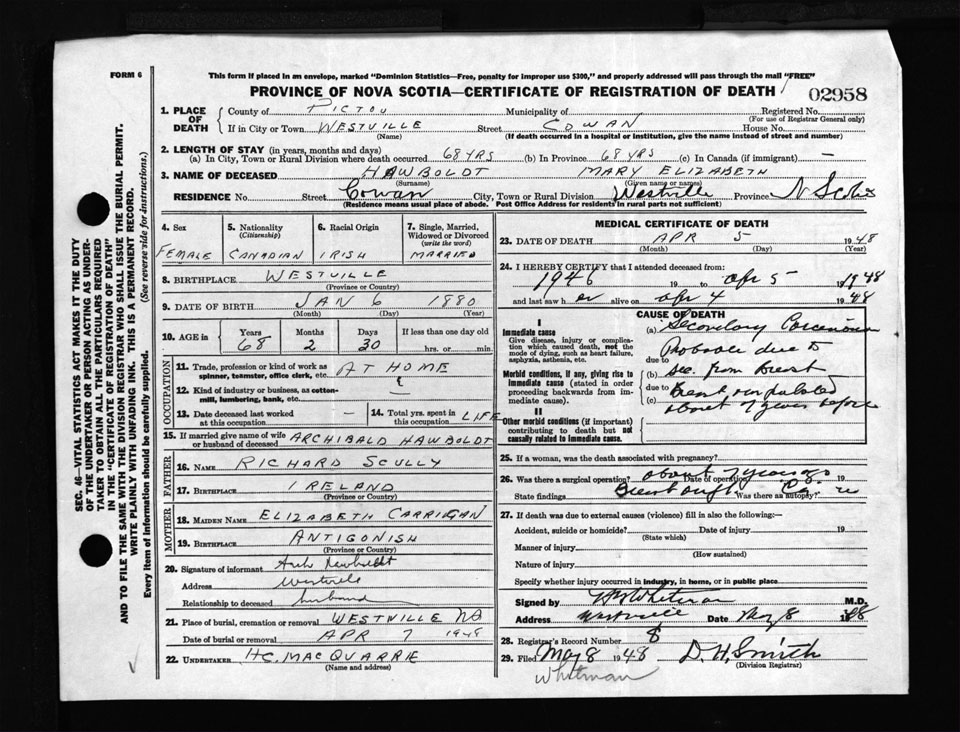 FORM 6
This form if placed in an envelope, marked "Dominion Statistics—Free, penalty for improper use $300," and properly addressed will pass through the mail "FREE"
PROVINCE OF NOVA SCOTIA—CERTIFICATE OF REGISTRATION OF DEATH
02958
1. PLACE OF DEATH
County of PICTOU Municipality of Registered No.
(For use of Registrar General only)
If in City or Town WESTVILLE Street COWAN House No.
(Name) (If death occurred in a hospital or institution, give the name instead of street and number)
2. LENGTH OF STAY (in years, months and days)
(a) In City, Town or Rural Division where death occurred 68 YRS (b) In Province 68 YRS (c) In Canada (if immigrant) —
3. NAME OF DECEASED HAWBOLDT MARY ELIZABETH
(Surname) (Given name or names)
RESIDENCE No. Street Cowan City, Town or Rural Division Westville Province N Scotia
(Residence means usual place of abode. Post Office Address for residents in rural parts not sufficient)
4. Sex
FEMALE
5. Nationality
(Citizenship)
CANADIAN
6. Racial Origin
IRISH
7. Single, Married, Widowed or Divorced
(write the word)
MARRIED
8. BIRTHPLACE WESTVILLE
(Province or Country)
9. DATE OF BIRTH JAN 6 1880
(Month) (Day) (Year)
10. AGE in Years Months Days If less than one day old
68 2 30 hrs. or min.
OCCUPATION
11. Trade, profession or kind of work as AT HOME
spinner, teamster, office clerk, etc.
12. Kind of industry or business, as cotton-
mill, lumbering, bank, etc.
13. Date deceased last worked at this occupation —
14. Total yrs. spent in this occupation LIFE
15. If married give name of wife or husband of deceased ARCHIBALD HAWBOLDT
FATHER
16. NAME RICHARD SCULLY
17. BIRTHPLACE IRELAND
(Province or Country)
MOTHER
18. MAIDEN NAME ELIZABETH CARRIGAN
19. BIRTHPLACE ANTIGONISH
(Province or Country)
20. Signature of informant Arch Hawboldt
Address Westville
Relationship to deceased husband
21. Place of burial, cremation or removal WESTVILLE NS
Date of burial or removal APR 7 1948
22. UNDERTAKER H.C. MACQUARRIE
(Name and address)
MEDICAL CERTIFICATE OF DEATH
23. DATE OF DEATH APR 5 1948
(Month) (Day) (Year)
24. I HEREBY CERTIFY that I attended deceased from:
1946 19 to Apr 5 1948
and last saw her alive on Apr 4 1948
CAUSE OF DEATH
I
Immediate cause
Give disease, injury or complication which caused death, not the mode of dying, such as heart failure, asphyxia, asthenia, etc.
Morbid conditions, if any, giving rise to immediate cause (stated in order proceeding backwards from immediate cause).
II
Other morbid conditions (if important) contributing to death but not causally related to immediate cause.
(a) Secondary Carcinoma
Probable due to
due to
(b) Sec. from Breast
due to
(c) Breast amputated
about 7 years before
25. If a woman, was the death associated with pregnancy?
26. Was there a surgical operation? about 7 years ago Date of operation 19
State findings Breast Was there an autopsy? no
27. If death was due to external causes (violence) fill in also the following:—
Accident, suicide or homicide? Date of injury 19
(State which)
Manner of injury
(How sustained)
Nature of injury
Specify whether injury occurred in industry, in home, or in public place
Signed by Whitman M.D.
Address Westville Date May 8 1948
28. Registrar's Record Number 8
29. Filed May 8 1948 D. H. Smith
(Division Registrar)
Whitman
SEC. 46—VITAL STATISTICS ACT MAKES IT THE DUTY
OF THE UNDERTAKER OR PERSON ACTING AS UNDER-
TAKER TO OBTAIN ALL THE PARTICULARS REQUIRED
IN THE "CERTIFICATE OF REGISTRATION OF DEATH"
AND TO FILE THE SAME WITH THE DIVISION REGISTRAR WHO SHALL ISSUE THE BURIAL PERMIT.
WRITE PLAINLY WITH UNFADING INK. THIS IS A PERMANENT RECORD.
Every item of information should be carefully supplied. (See reverse side for instructions.)